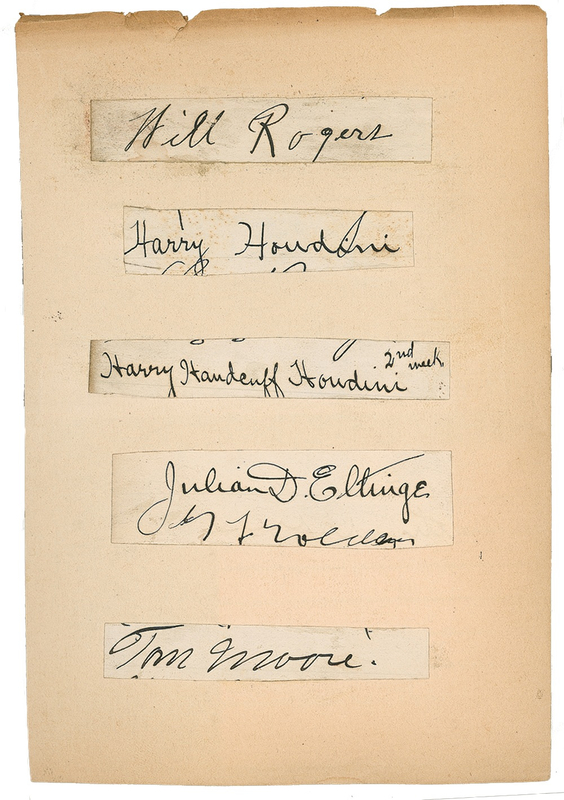 Will Rogers
Harry Houdini
Harry Handcuff Houdini 2nd week
Julian D. Eltinge
Tom Moore.